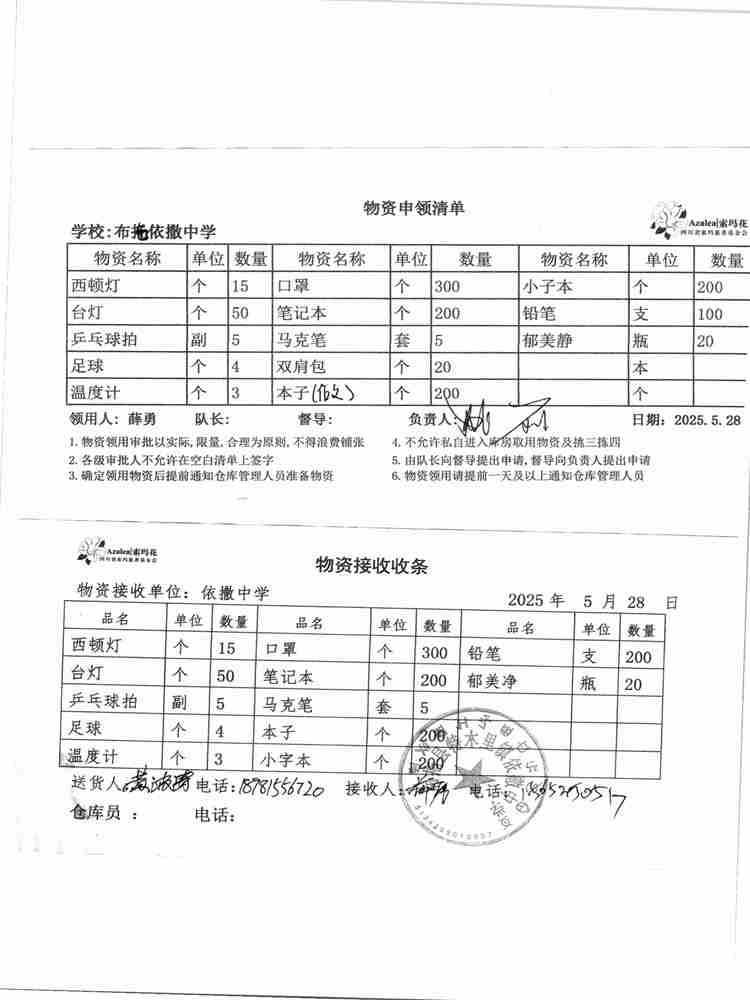 物资申领清单
Azalea|索玛花
四川省索玛慈善基金会
学校:布拖依撒中学
物资名称 单位 数量 物资名称 单位 数量 物资名称 单位 数量
西顿灯 个 15 口罩 个 300 小子本 个 200
台灯 个 50 笔记本 个 200 铅笔 支 100
乒乓球拍 副 5 马克笔 套 5 郁美静 瓶 20
足球 个 4 双肩包 个 20 本
温度计 个 3 本子(作文) 个 200 个
领用人: 薛勇 队长: 督导: 负责人: 日期: 2025.5.28
1.物资领用审批以实际,限量,合理为原则,不得浪费铺张 4.不允许私自进入库房取用物资及挑三拣四
2.各级审批人不允许在空白清单上签字 5.由队长向督导提出申请,督导向负责人提出申请
3.确定领用物资后提前通知仓库管理人员准备物资 6.物资领用请提前一天及以上通知仓库管理人员
Azalea|索玛花
四川省索玛慈善基金会
物资接收收条
物资接收单位: 依撒中学 2025 年 5 月 28 日
品名 单位 数量 品名 单位 数量 品名 单位 数量
西顿灯 个 15 口罩 个 300 铅笔 支 200
台灯 个 50 笔记本 个 200 郁美净 瓶 20
乒乓球拍 副 5 马克笔 套 5
足球 个 4 本子 个 200
温度计 个 3 小字本 个 200
送货人: 电话:18981556720 接收人: 电话:
仓库员 : 电话: